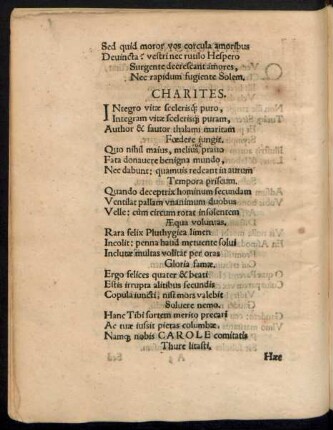 Sed quid moror vos corcula amoribus
Devincta? vestri nec rutilo Hespero
Surgente decrescant amores,
Nec rapidum fugiente Solem.
CHARITES.
INtegro vitæ scelerisq; puro,
Integram vitæ scelerisq; puram,
Author & fautor thalami maritam
Fœdere jungit.
Quo nihil maius, meliusq; pravo
Fata donavere benigna mundo,
Nec dabunt; quamvis redeant in aurum
Tempora priscum.
Quando deceptrix hominum secundam
Ventilat pallam unanimum duobus
Velle: cum circum rotat insolentem
Æqua voluntas,
Rara felix Pluthygica limen
Incolit: penna haud metuente solvi
Inclutæ multas volitat per oras
Gloria famæ.
Ergo felices quater & beati
Estis irrupta alitibus secundis
Copula juncti, nisi mors valebit
Solvere nemo.
Hanc Tibi sortem merito precari
Ac tuæ jussit pietas columbæ,
Namq; nobis CAROLE comitatis
Thure litasti.
Hæc